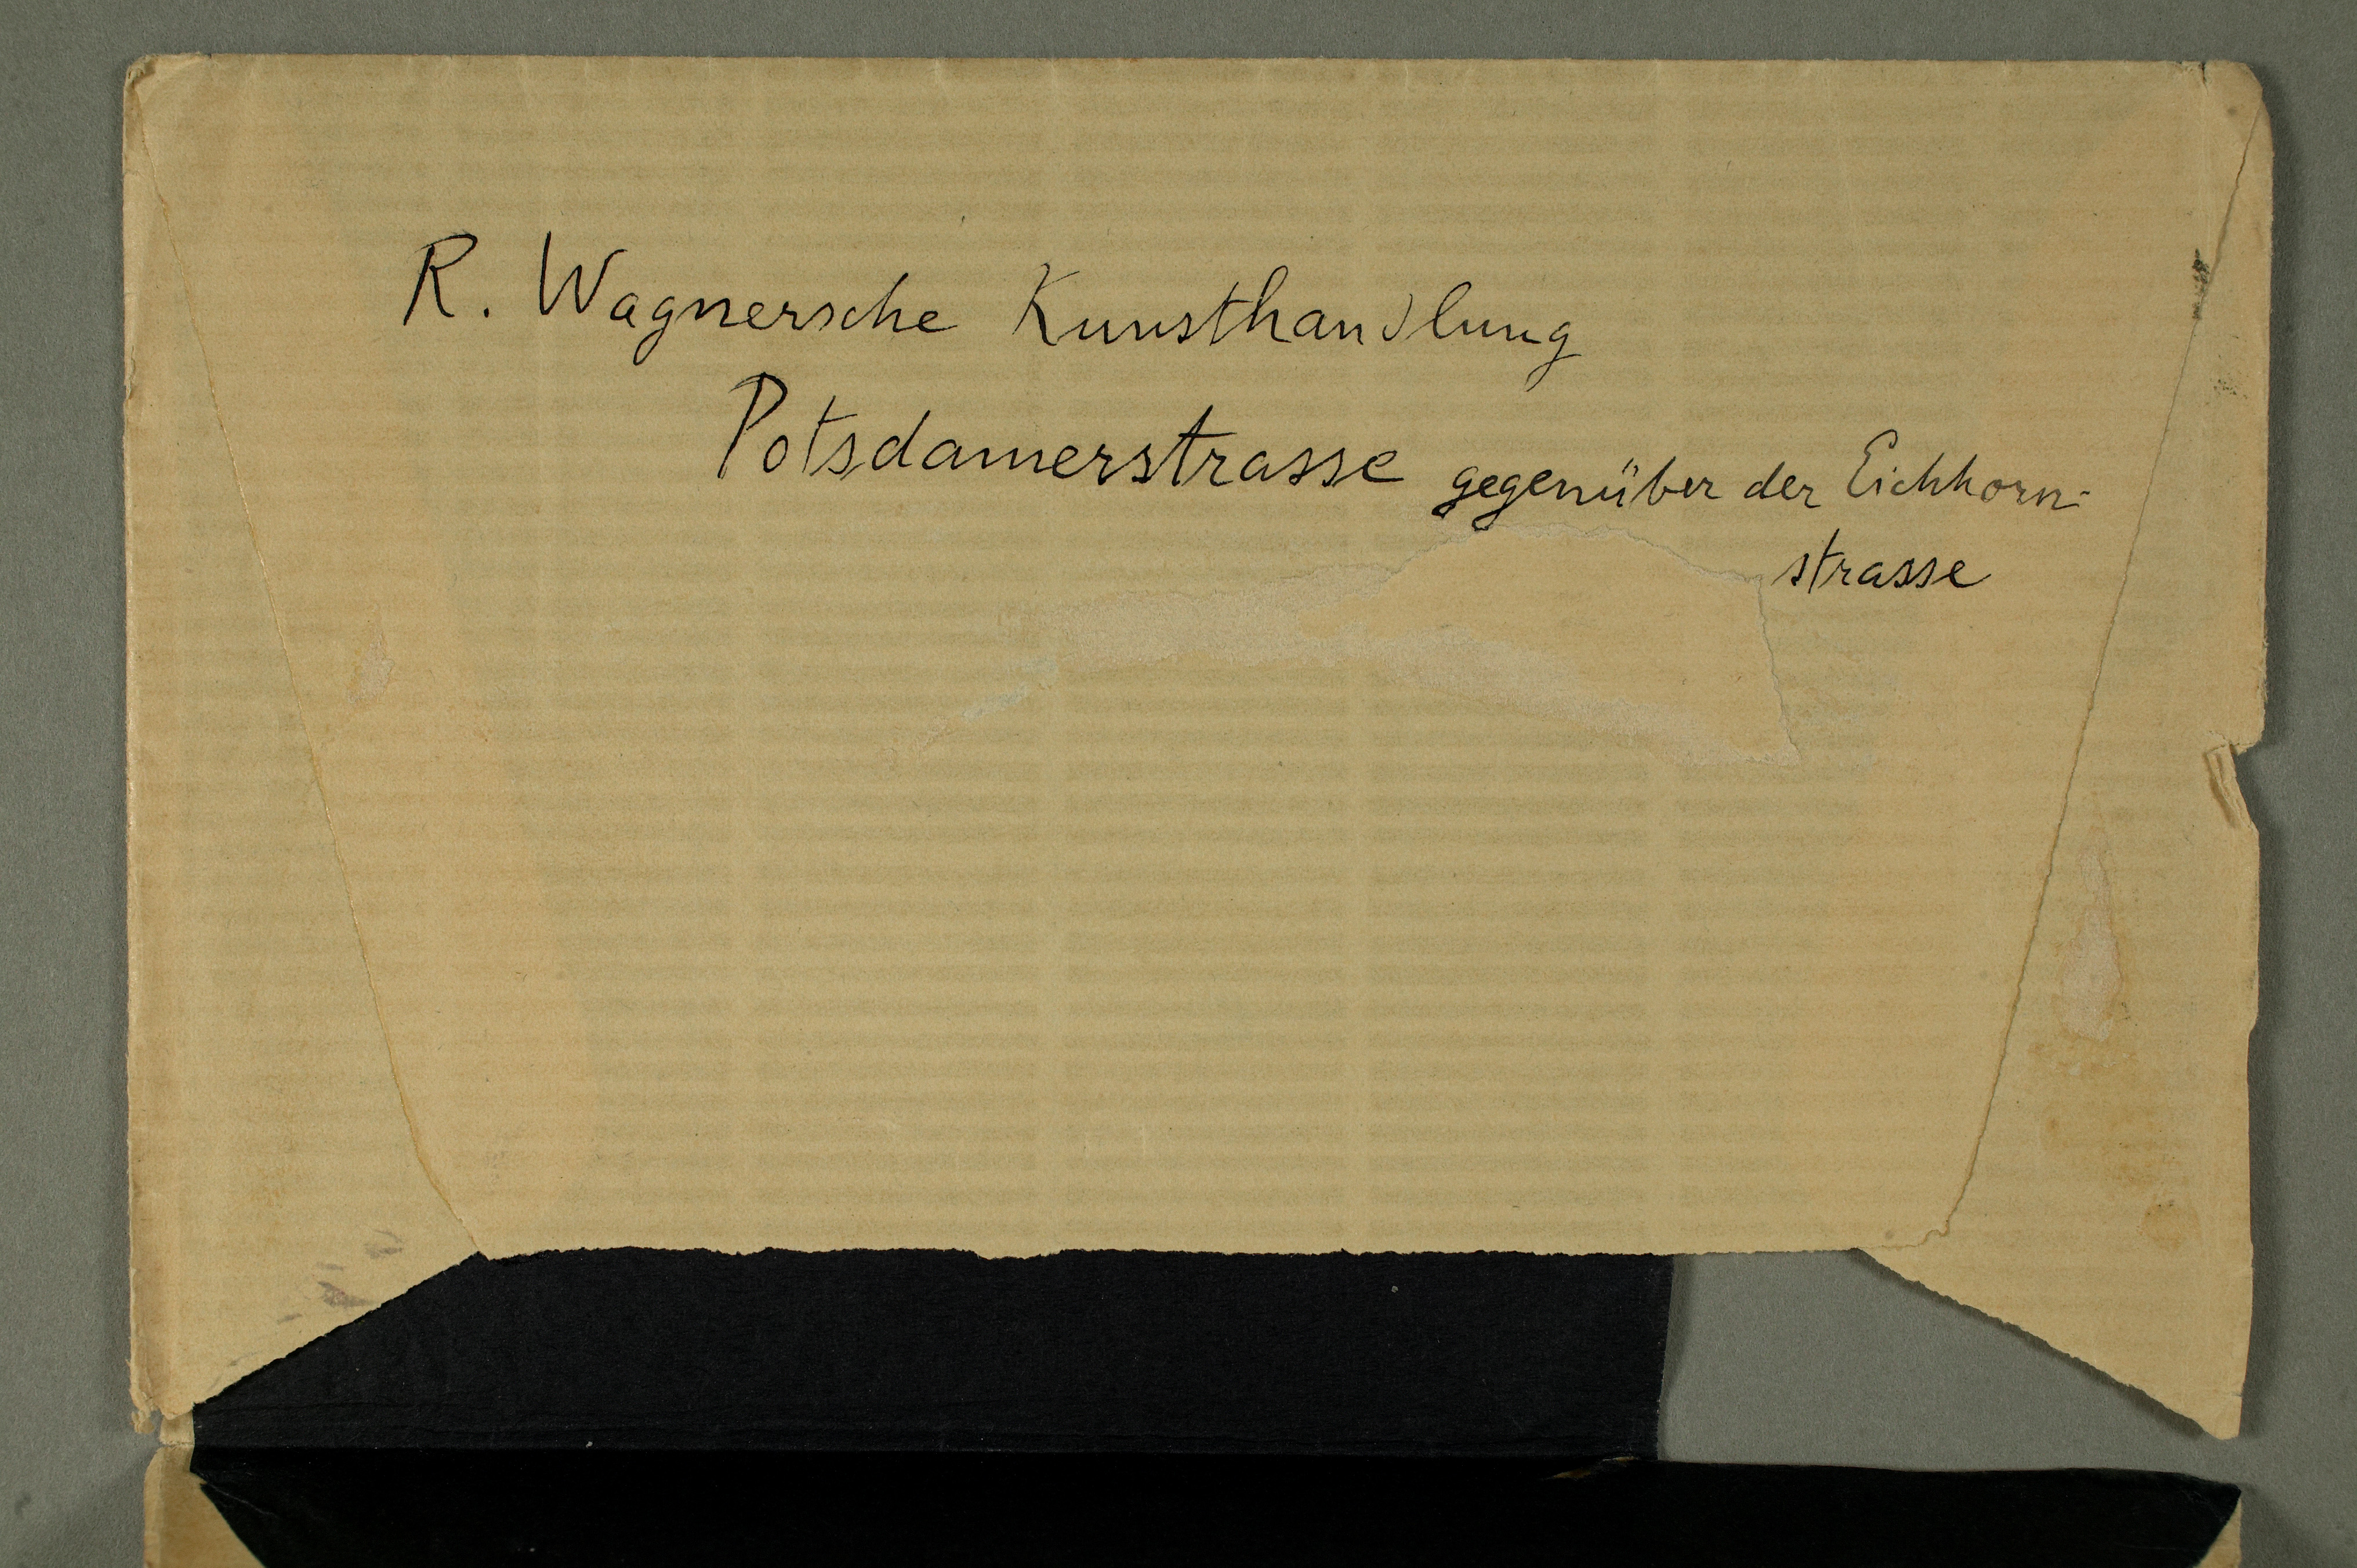 R. Wagnersche Kunsthandlung
Potsdamerstrasse gegenüber der Eichhorn-
strasse